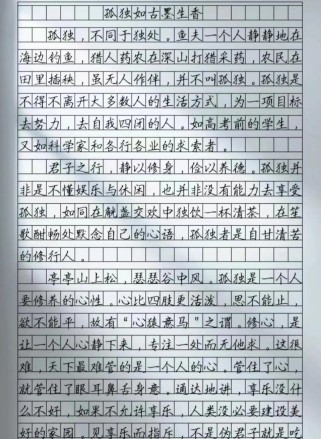 孤独如古墨生香
孤独，不同于独处。渔夫一个人静静地在
海边钓鱼，猎人药农在深山打猎采药，农民在
田里插秧，虽无人作伴，并不叫孤独。孤独是
不得不离开大多数人的生活方式，为一项目标
去努力，去自我四闭的人。如高考前的学生，
又如科学家和各行各业的求索者。
君子之行，静以修身，俭以养德。孤独并
非是不懂娱乐与休闲，也并非没有能力去享受
孤独，如同在觥盏交欢中独饮一杯清茶，在笙
歌酣畅处默念自己的心语，孤独者是自甘清苦
的修行人。
亭亭山上松，瑟瑟谷中风。孤独是一个人
要修养的心性。心比四肢更活泼，思不能止，
欲不能平，故有“心猿意马”之谓。修心，是
让一个人心静下来，专注一处而无他求。这很
难，天下最难管的是一个人的心，管住了心，
就管住了眼耳鼻舌身意。通达地讲，享乐没什
么不好，如果不允许享乐，人类没必要建设美
好的家园。见享乐而指斥，不是伪君子就是吃